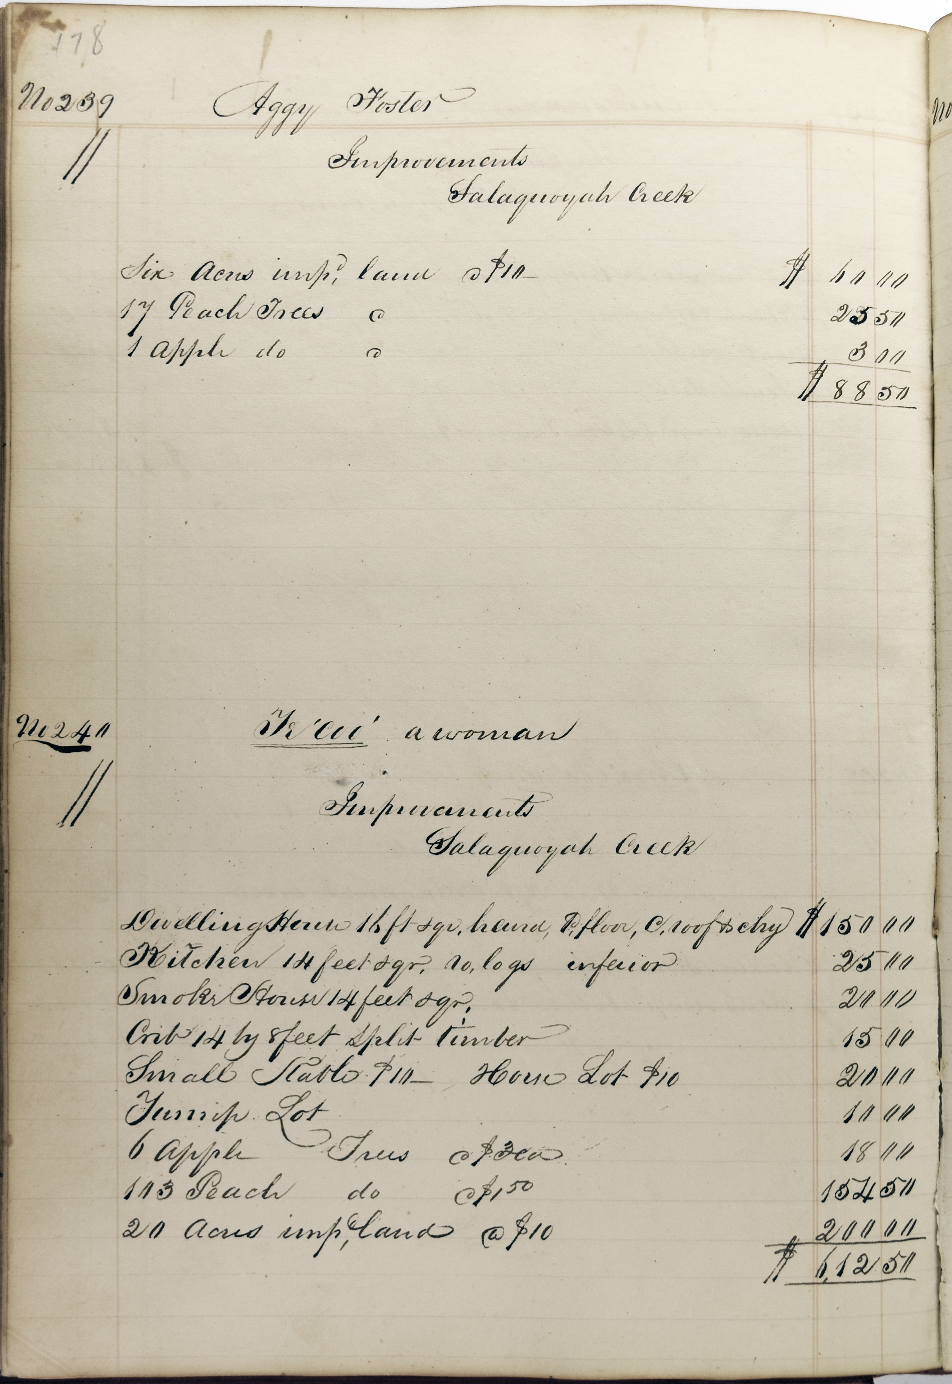 178
No 239 Aggy Foster
// Improvements
Salaquoyah Creek
Six Acres imp.d land @ $10 — $ 60 00
17 Peach Trees @ 25 50
1 Apple do @ 3 00
$ 88 50
No 240 a woman
// Improvements
Salaquoyah Creek
Dwelling House 16 ft sqr, hewed, P, floor, C, roof & chy $ 150 00
Kitchen 14 feet sqr, ro, logs inferior 25 00
Smoke House 14 feet sqr, 20 00
Crib 14 by 8 feet split timber 15 00
Small Stable $10 — Horse Lot $10 20 00
Turnip Lot 10 00
6 Apple Trees @ $3 ea 18 00
103 Peach do @ $1 50 154 50
20 Acres imp.d land @ $10 200 00
$ 612 50